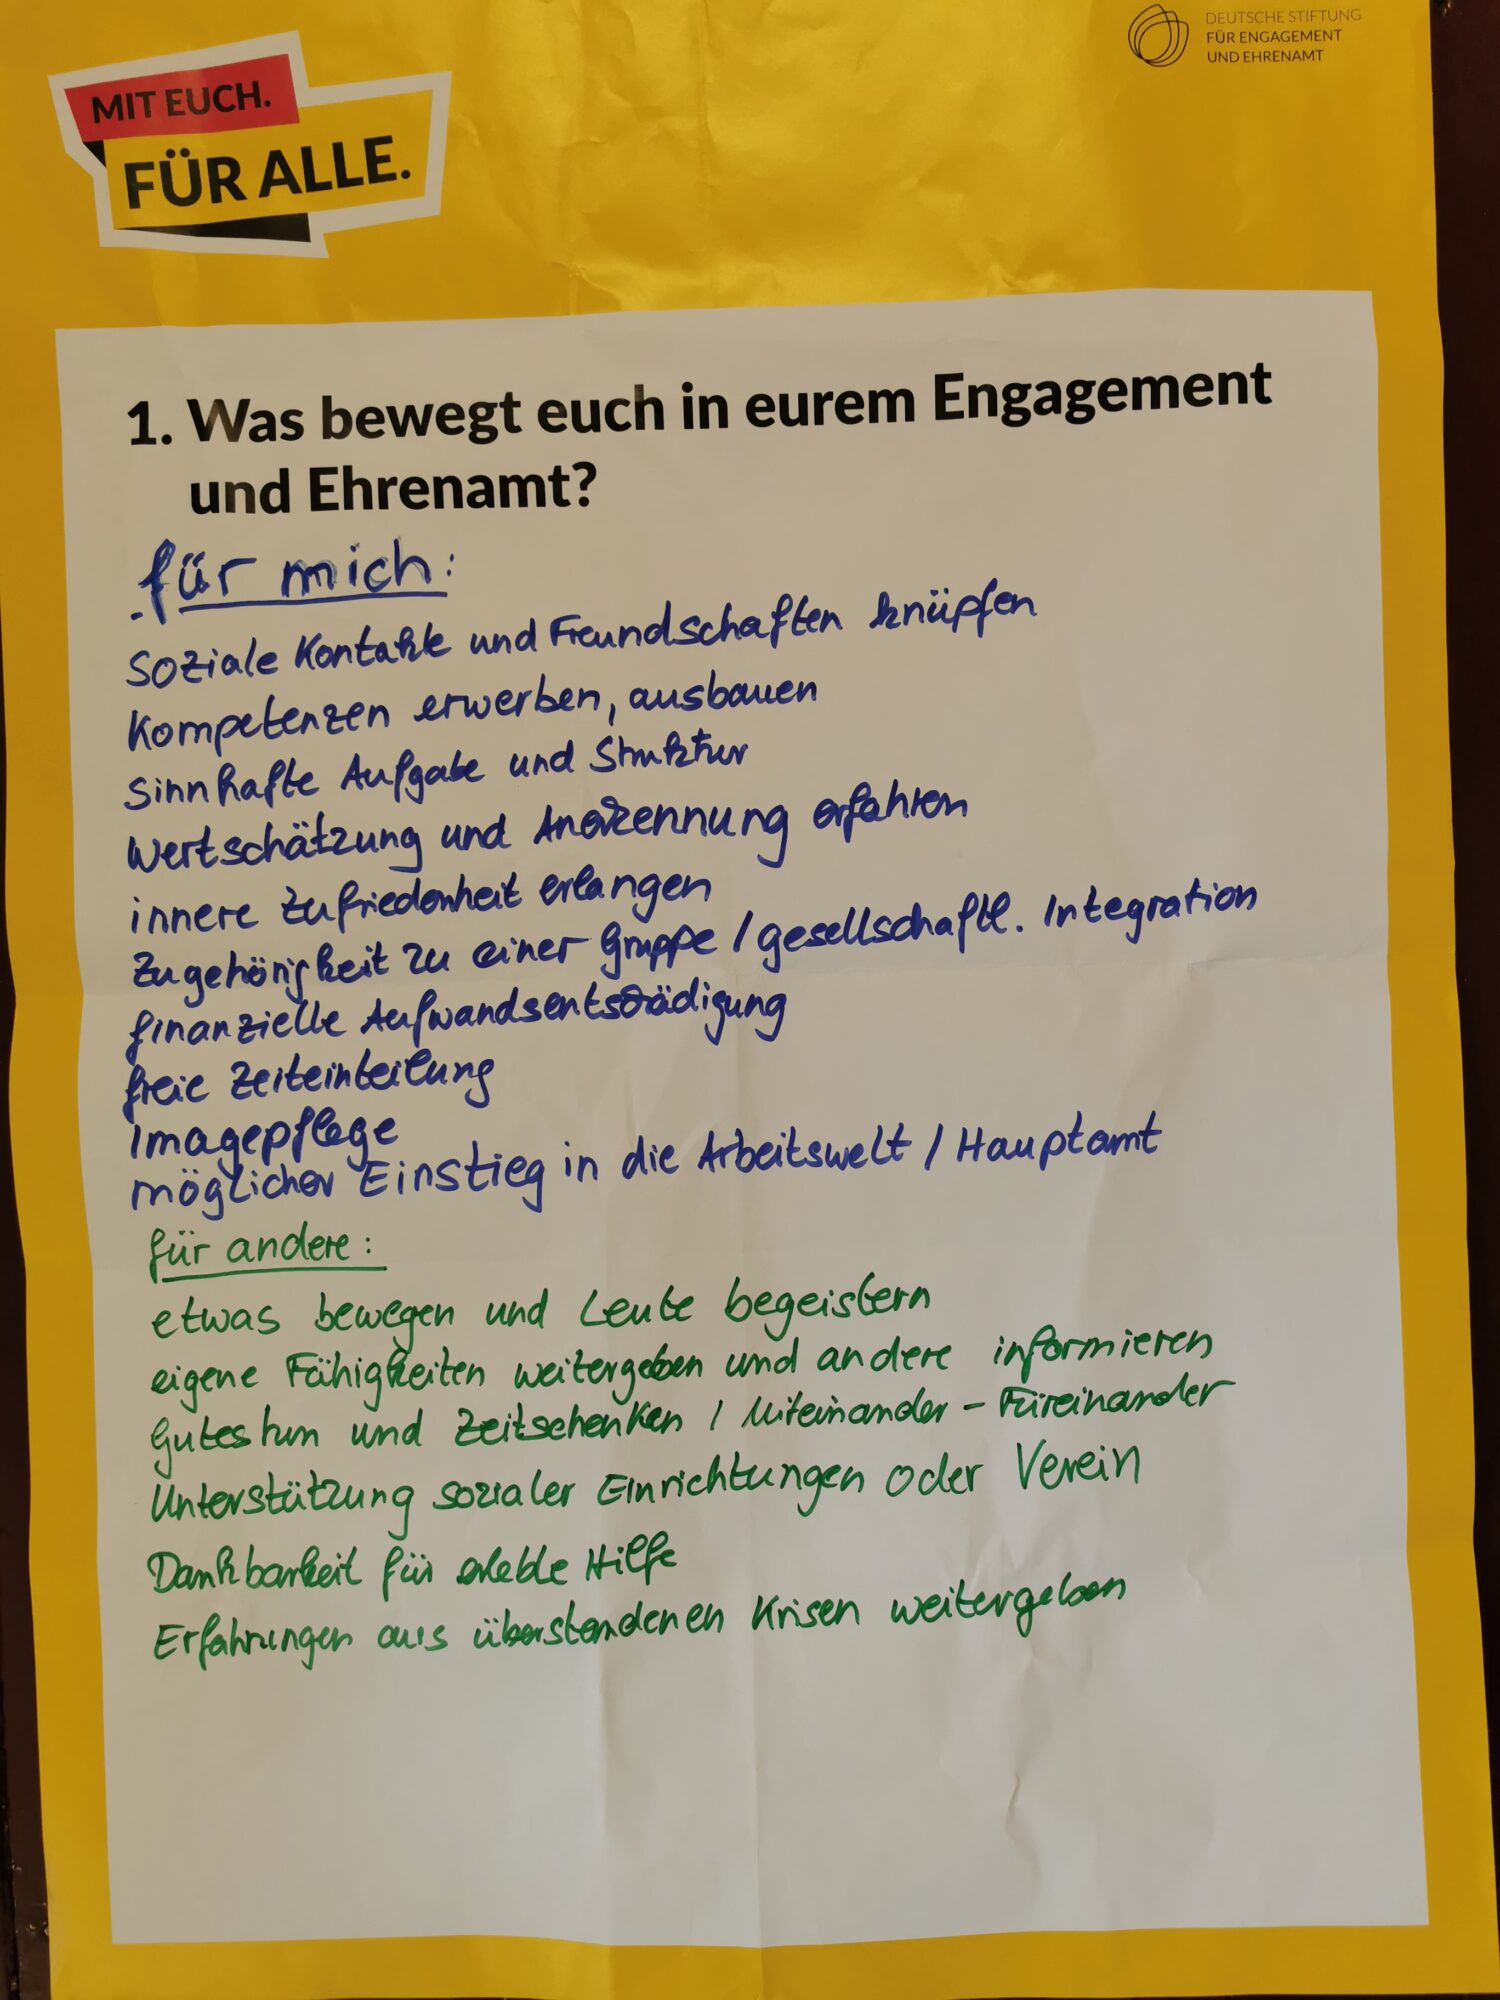 DEUTSCHE STIFTUNG
FÜR ENGAGEMENT
UND EHRENAMT
MIT EUCH.
FÜR ALLE.
1. Was bewegt euch in eurem Engagement
und Ehrenamt?
für mich:
Soziale Kontakte und Freundschaften knüpfen
Kompetenzen erwerben, ausbauen
Sinnhafte Aufgabe und Struktur
Wertschätzung und Anerkennung erfahren
innere Zufriedenheit erlangen
Zugehörigkeit zu einer Gruppe / gesellschaftl. Integration
finanzielle Aufwandsentschädigung
freie Zeiteinteilung
Imagepflege
möglicher Einstieg in die Arbeitswelt / Hauptamt
für andere:
etwas bewegen und Leute begeistern
eigene Fähigkeiten weitergeben und andere informieren
Gutes tun und Zeit schenken / Miteinander - Füreinander
Unterstützung sozialer Einrichtungen oder Verein
Dankbarkeit für erlebte Hilfe
Erfahrungen aus überstandenen Krisen weitergeben